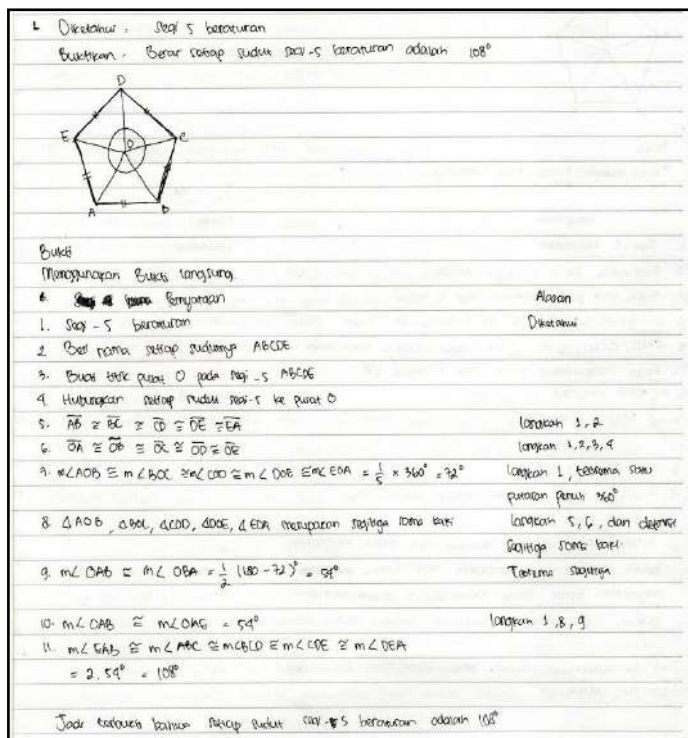 1. Diketahui : Segi 5 beraturan
Buktikan : Besar setiap sudut segi-5 beraturan adalah 108°
D
E
O
C
A
B
Bukti
Menggunakan Bukti langsung
Pernyataan Alasan
1. Segi-5 beraturan Diketahui
2. Beri nama setiap sudutnya ABCDE
3. Buat titik pusat O pada segi-5 ABCDE
4. Hubungkan setiap sudut segi-5 ke pusat O
5. AB ≅ BC ≅ CD ≅ DE ≅ EA langkah 1,2
6. OA ≅ OB ≅ OC ≅ OD ≅ OE langkah 1,2,3,4
7. m∠AOB ≅ m∠BOC ≅ m∠COD ≅ m∠DOE ≅ m∠EOA = 1/5 × 360° = 72° langkah 1, teorema satu
putaran penuh 360°
8. △AOB, △BOC, △COD, △DOE, △EOA merupakan segitiga sama kaki langkah 5,6, dan definisi
segitiga sama kaki.
9. m∠OAB ≅ m∠OBA = 1/2 (180-72)° = 54° Teorema segitiga
10. m∠OAB ≅ m∠OAE = 54° langkah 1,8,9
11. m∠EAB ≅ m∠ABC ≅ m∠BCD ≅ m∠CDE ≅ m∠DEA
= 2.54° = 108°
Jadi terbukti bahwa setiap sudut segi-5 beraturan adalah 108°